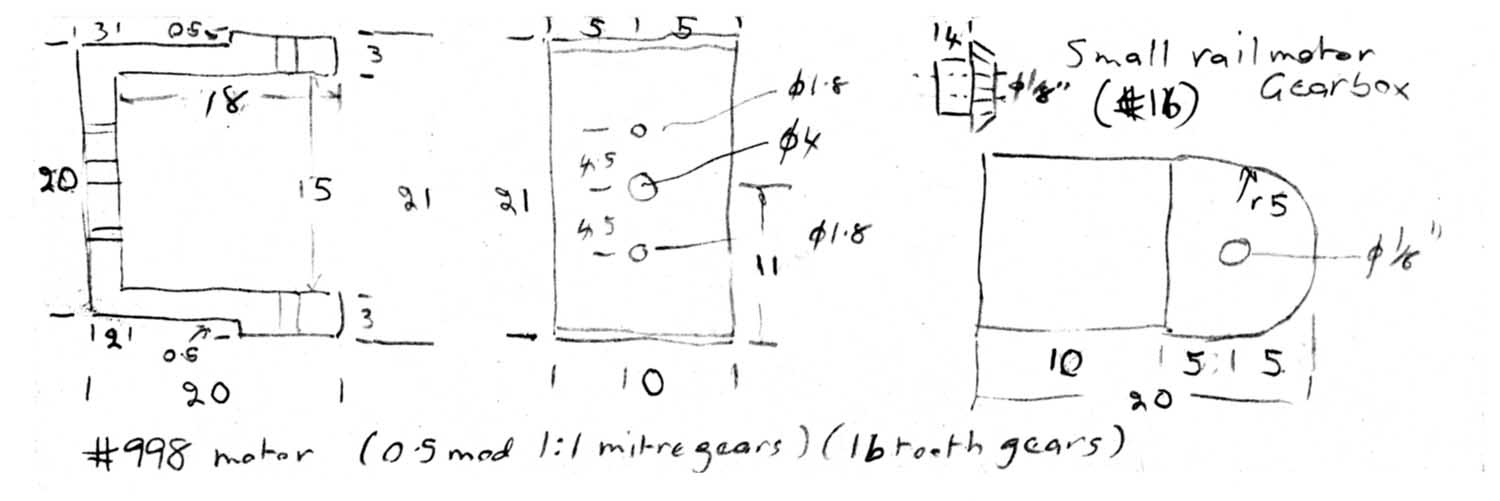 3
0.5
3
18
20
15
21
2
0.5
3
20
5 5
φ1.8
φ4
4.5
21
4.5
φ1.8
11
10
4
φ1/8"
Small railmotor
Gearbox
(#16)
r5
φ1/8"
10 5 5
20
#998 motor (0.5 mod 1:1 mitre gears) (16 tooth gears)